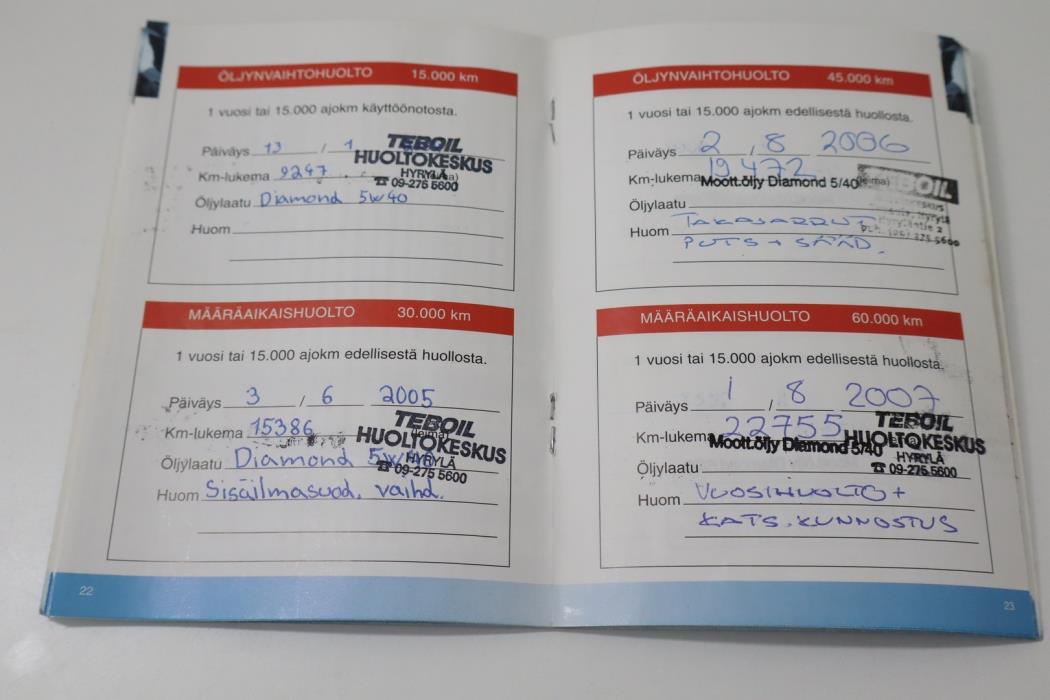 ÖLJYNVAIHTOHUOLTO 15.000 km
1 vuosi tai 15.000 ajokm käyttöönotosta.
Päiväys 13 / 1
TEBOIL
HUOLTOKESKUS
HYRYLÄ
☎ 09-275 5600
Km-lukema 9297
Öljylaatu Diamond 5W40
Huom
MÄÄRÄAIKAISHUOLTO 30.000 km
1 vuosi tai 15.000 ajokm edellisestä huollosta.
Päiväys 3 / 6 2005
Km-lukema 15386 (leima)
TEBOIL
HUOLTOKESKUS
HYRYLÄ
☎ 09-275 5600
Öljylaatu Diamond 5W40
Huom Sisäilmasuod. vaihd.
22
ÖLJYNVAIHTOHUOLTO 45.000 km
1 vuosi tai 15.000 ajokm edellisestä huollosta.
Päiväys 2 / 8 2006
Km-lukema 19472 (leima)
Moott.öljy Diamond 5/40
TEBOIL
Öljylaatu
Huom TAKAJARRUT
PUTS + SÄÄD.
MÄÄRÄAIKAISHUOLTO 60.000 km
1 vuosi tai 15.000 ajokm edellisestä huollosta.
Päiväys 1 / 8 2007
Km-lukema 22755
Moott.öljy Diamond 5/40
TEBOIL
HUOLTOKESKUS
HYRYLÄ
☎ 09-275 5600
Öljylaatu
Huom VUOSIHUOLTO +
KATS. KUNNOSTUS
23